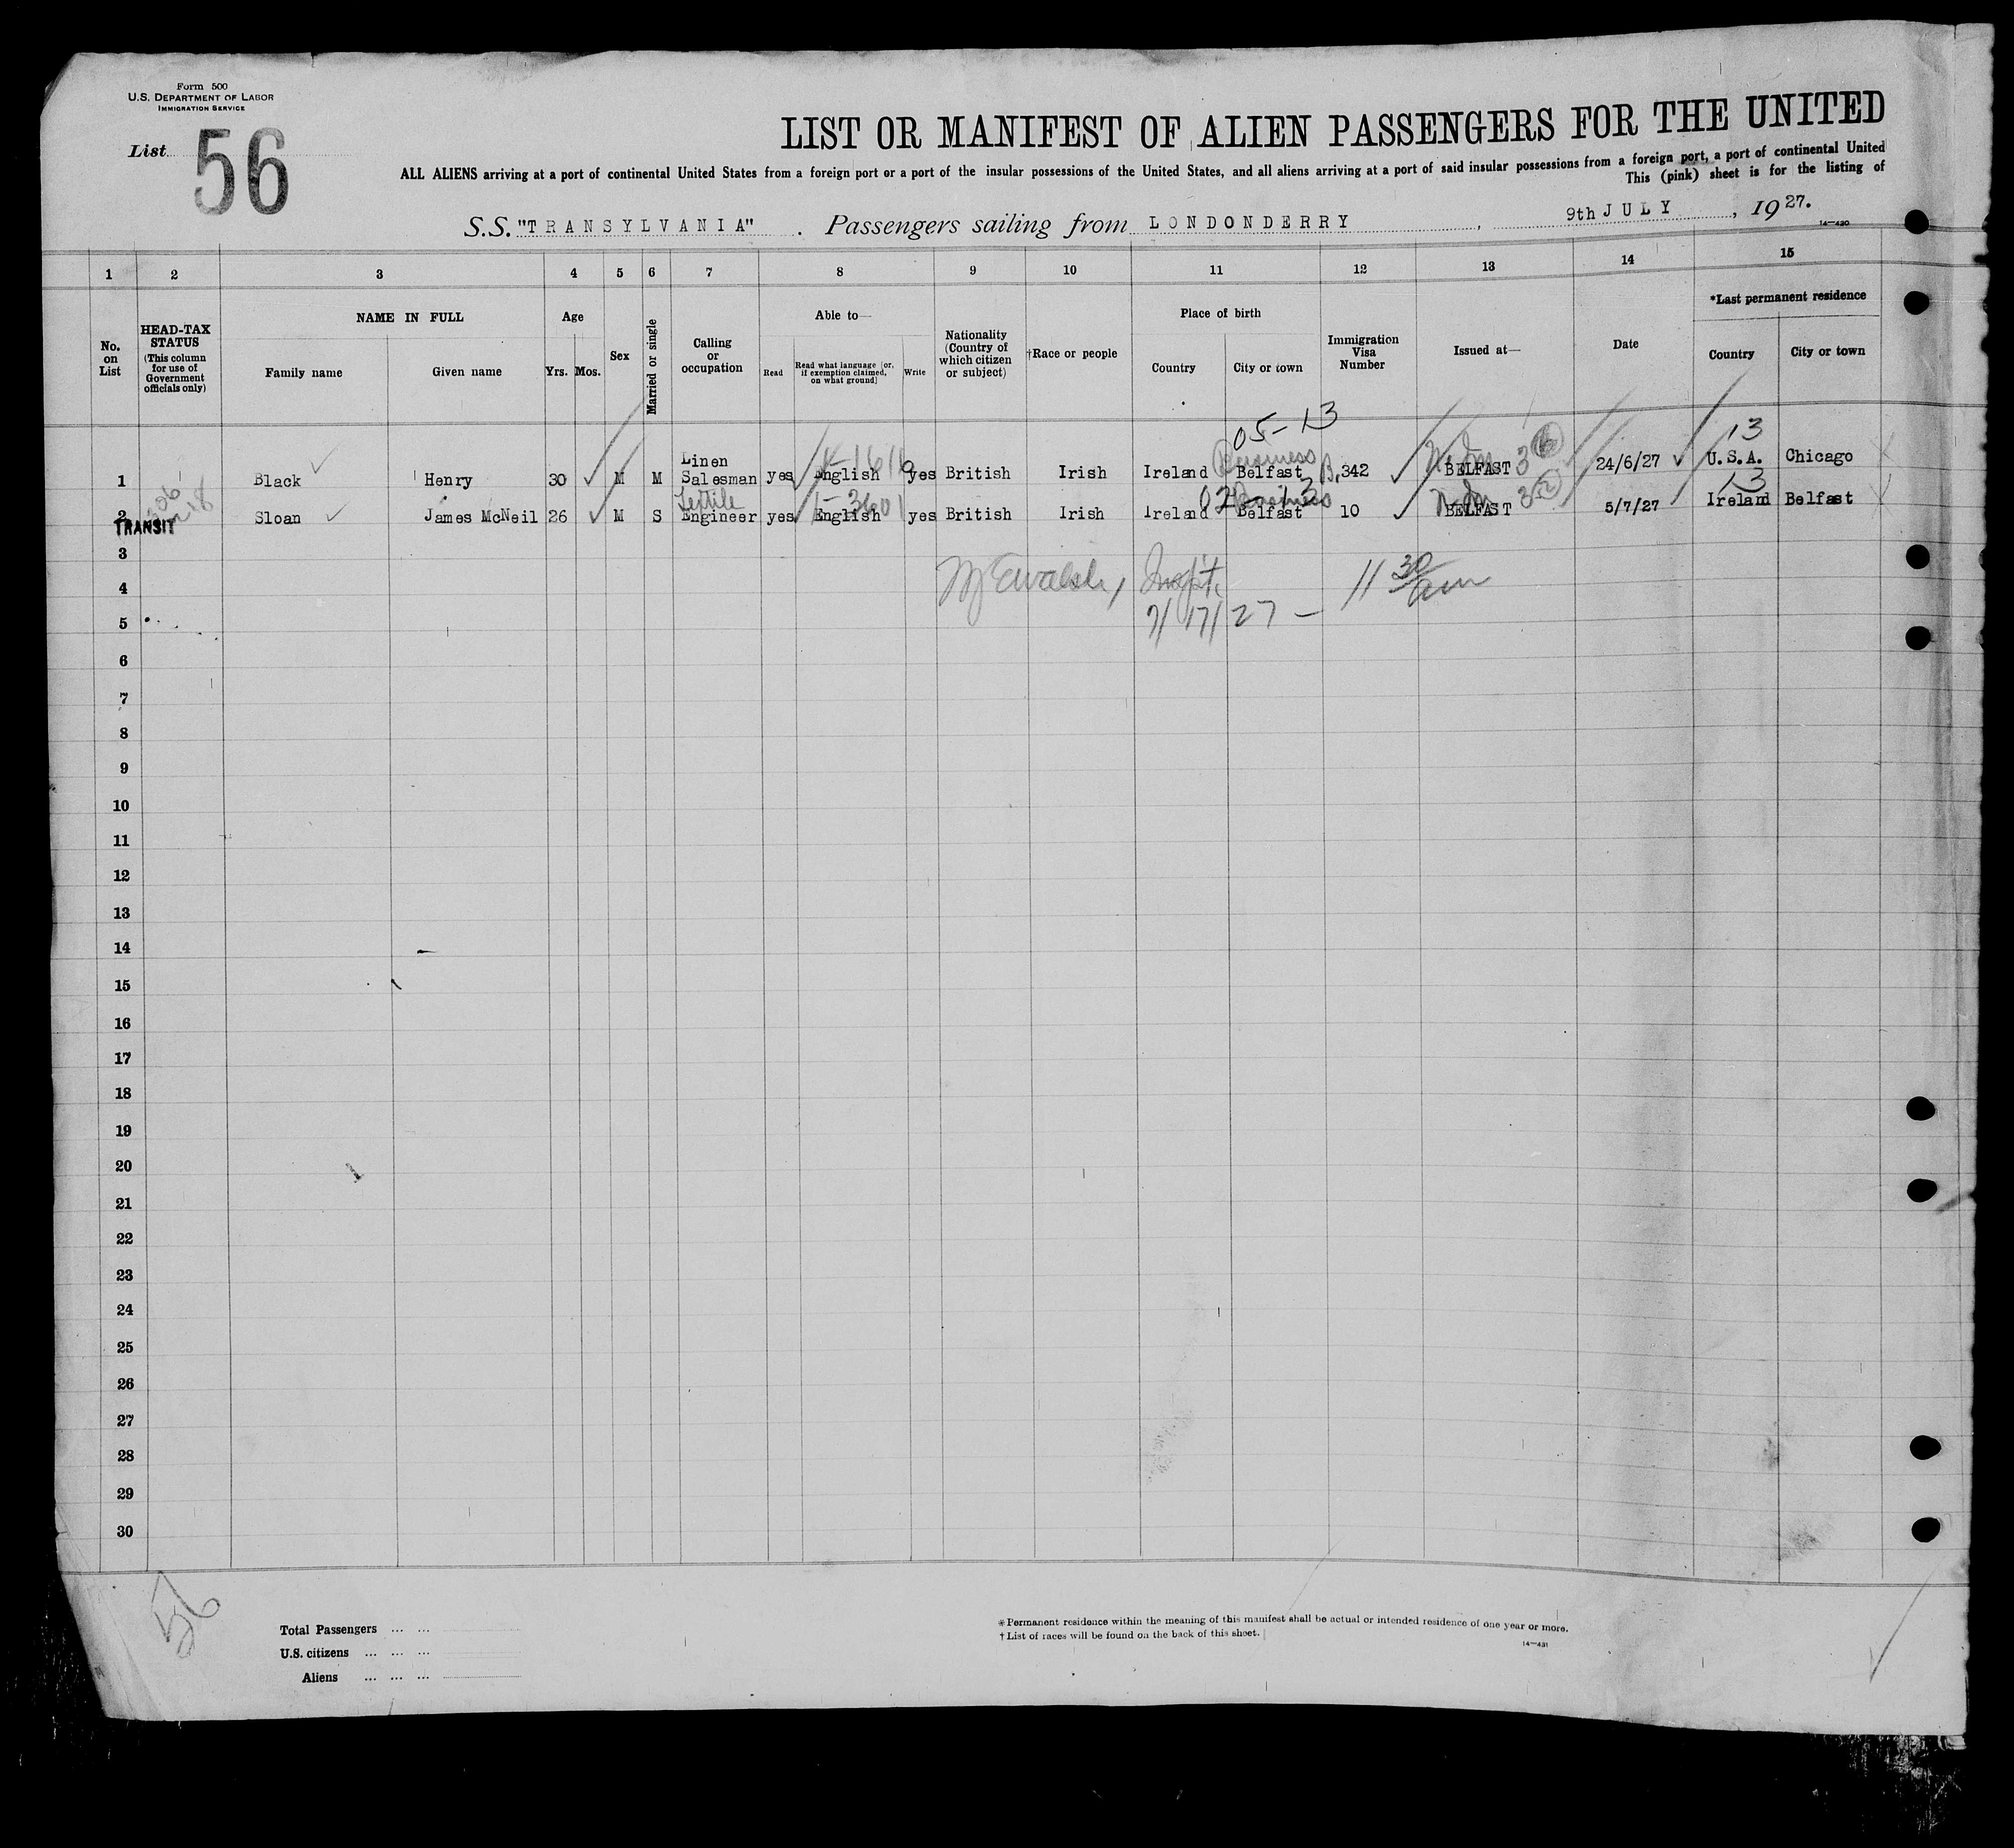 Form 500
U.S. DEPARTMENT OF LABOR
IMMIGRATION SERVICE
List 56
LIST OR MANIFEST OF ALIEN PASSENGERS FOR THE UNITED
ALL ALIENS arriving at a port of continental United States from a foreign port or a port of the insular possessions of the United States, and all aliens arriving at a port of said insular possessions from a foreign port, a port of continental United
This (pink) sheet is for the listing of
S.S. "TRANSYLVANIA" . Passengers sailing from LONDONDERRY , 9th JULY , 19 27.
14—430
1 2 3 4 5 6 7 8 9 10 11 12 13 14 15
No. on List
HEAD-TAX STATUS (This column for use of Government officials only)
NAME IN FULL
Family name
Given name
Age
Yrs. Mos.
Sex
Married or single
Calling or occupation
Able to—
Read
Read what language [or, if exemption claimed, on what ground]
Write
Nationality (Country of which citizen or subject)
†Race or people
Place of birth
Country
City or town
Immigration Visa Number
Issued at—
Date
*Last permanent residence
Country
City or town
05-13
13
1 Black Henry 30 M M Linen Salesman yes English yes British Irish Ireland Belfast 342 BELFAST 3 24/6/27 U.S.A. Chicago
Business
13
2 Sloan James McNeil 26 M S Textile Engineer yes English yes British Irish Ireland Belfast 10 BELFAST 3 5/7/27 Ireland Belfast
Business
TRANSIT
3
4
11 30 am
5
7/17/27 —
6
7
8
9
10
11
12
13
14
15
16
17
18
19
20
21
22
23
24
25
26
27
28
29
30
56
Total Passengers ... ...
U.S. citizens ... ... ...
Aliens ... ... ...
*Permanent residence within the meaning of this manifest shall be actual or intended residence of one year or more.
†List of races will be found on the back of this sheet.
14—431